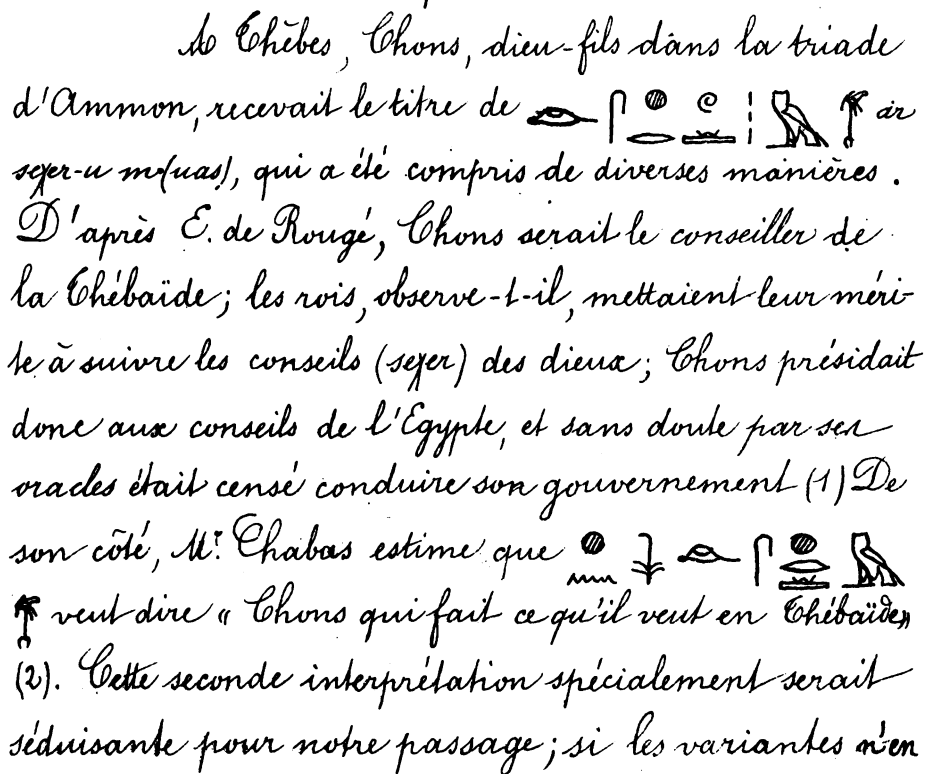 A Thèbes, Chons, dieu-fils dans la triade
d'Ammon, recevait le titre de 𓁹𓋴𓐍𓂋𓏲𓏛𓏥𓅓𓌀 ar
seχer-u m(uas), qui a été compris de diverses manières.
D'après E. de Rougé, Chons serait le conseiller de
la Thébaïde; les rois, observe-t-il, mettaient leur méri-
te à suivre les conseils (seχer) des dieux; Chons présidait
donc aux conseils de l'Egypte, et sans doute par ses
oracles était censé conduire son gouvernement (1) De
son côté, Mr. Chabas estime que 𓐍𓈖𓇓𓁹𓋴𓐍𓂋𓏛𓅓
𓌀 veut dire « Chons qui fait ce qu'il veut en Thébaïde»
(2). Cette seconde interprétation spécialement serait
séduisante pour notre passage; si les variantes n'en